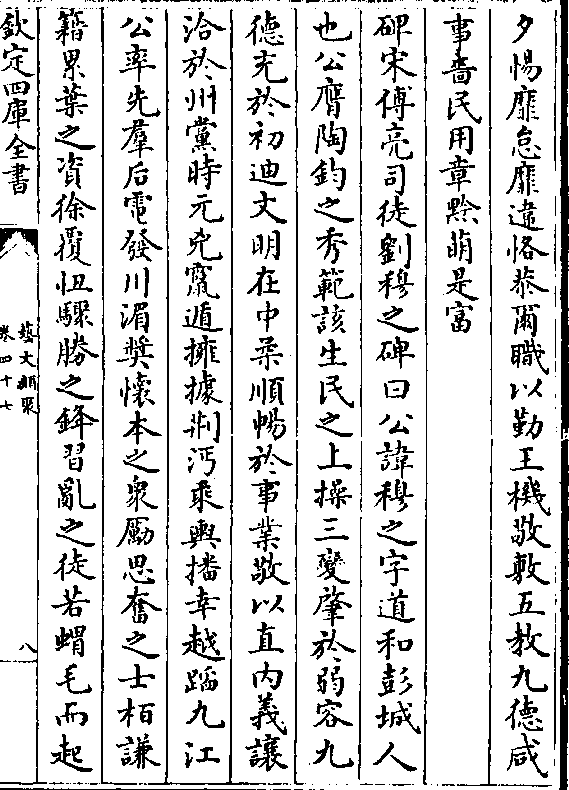 夕惕靡怠靡違恪恭爾職以勤王機敬敷五教九德咸
事嗇民用章黔萌是富
碑宋傅亮司徒劉穆之碑曰公諱穆之字道和彭城人
也公膺陶鈞之秀範該生民之上操三變肇於弱容九
德充於初迪文明在中柔順暢於事業敬以直內義讓
洽於州黨時元兇竄遁擁據荆沔乘輿播幸越蹈九江
公率先羣后電發川湄奬懷本之衆勵思奮之士栢謙
籍累葉之資徐覆忸驟勝之鋒習亂之徒若蝟毛而起
欽定四庫全書
藝文類聚
卷四十七
八